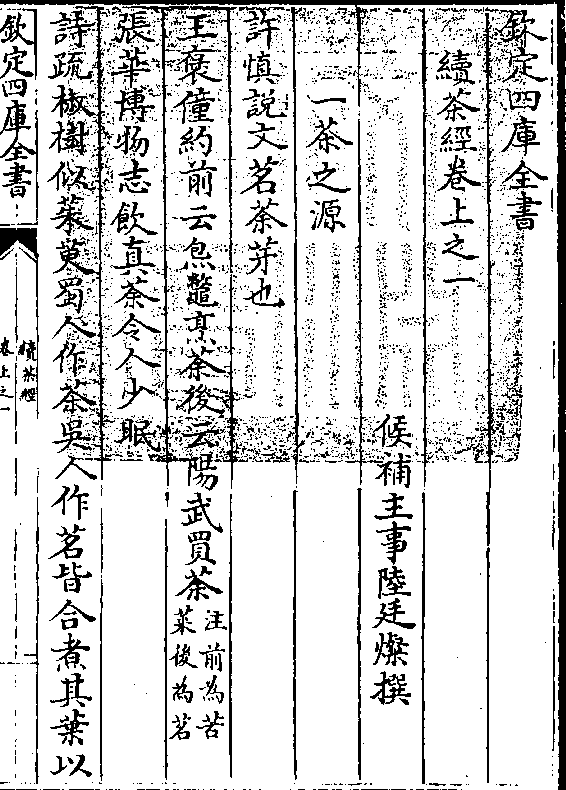 欽定四庫全書
續茶經卷上之一
候補主事陸廷燦撰
一茶之源
許慎説文茗荼芽也
王襃僮約前云炰鼈烹荼後云陽武買茶注前為苦菜後為茗
張華博物志飲真荼令人少眠
詩疏椒樹似茱萸蜀人作茶吳人作茗皆合煮其葉以
欽定四庫全書
續茶經
卷上之一
一